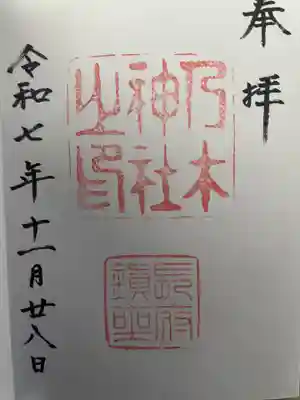 奉拝
乃木
神社
之印
長府
鎮坐
令和七年十一月廿八日